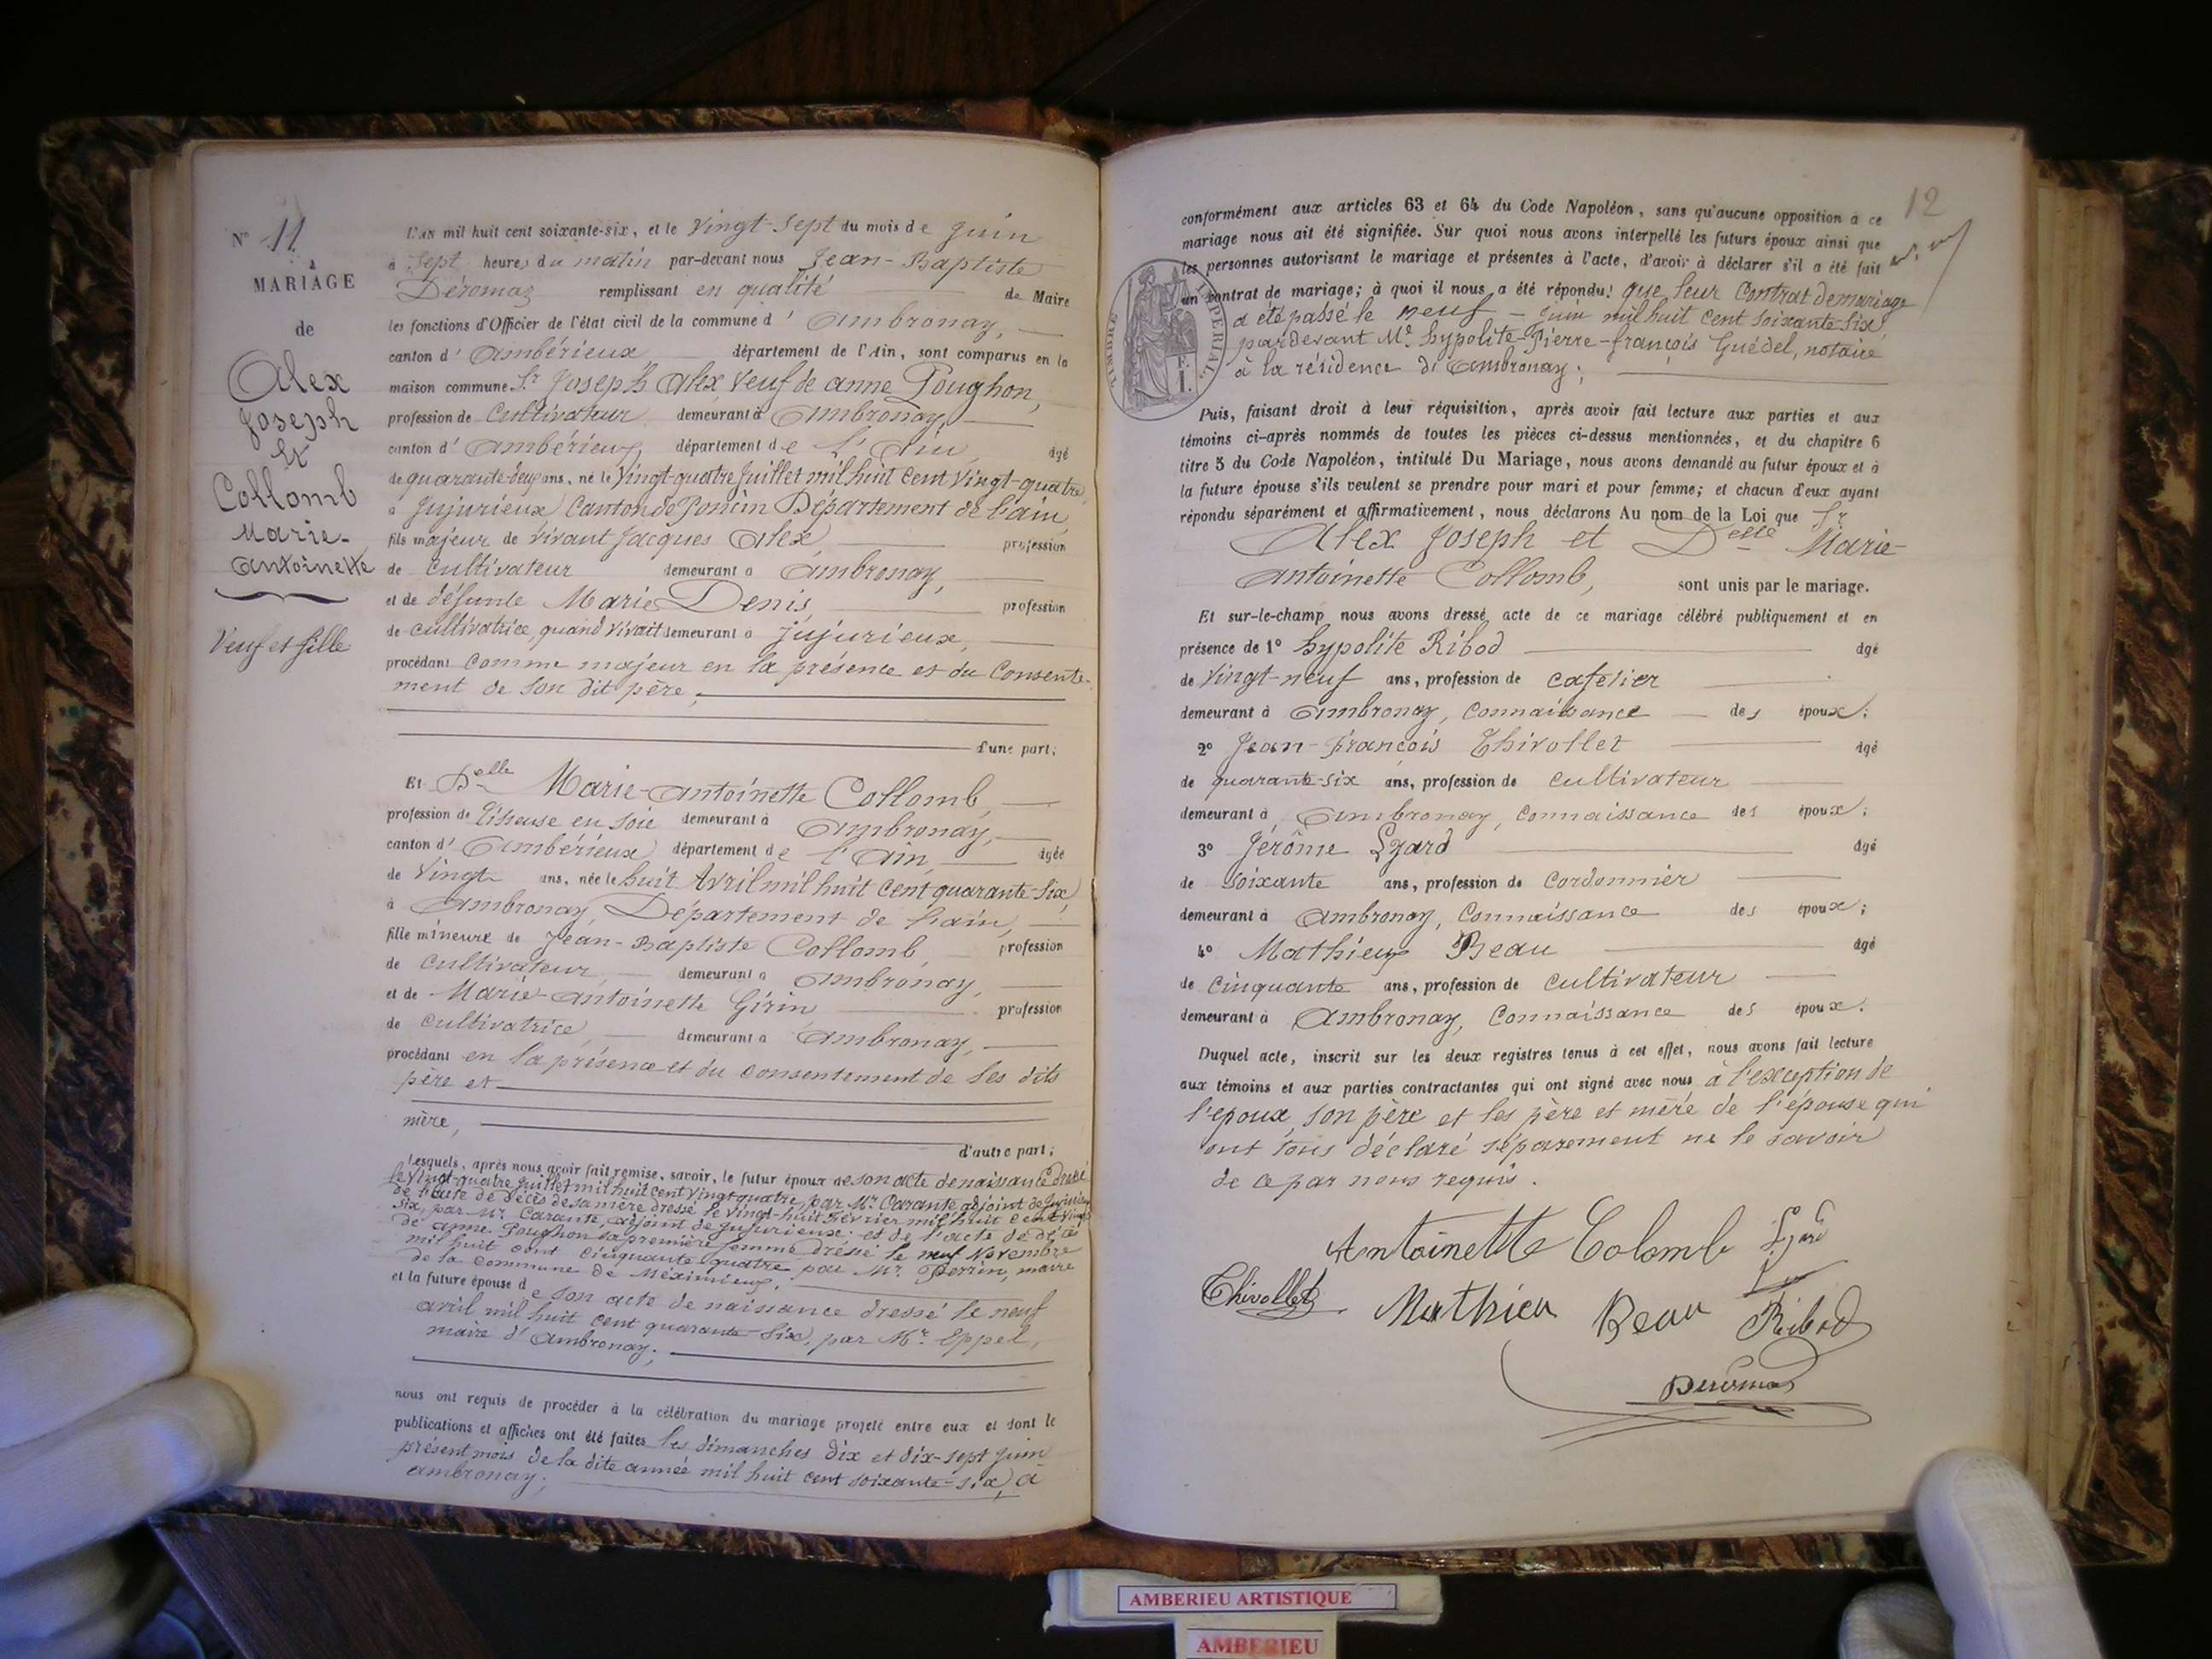 N° 11
MARIAGE
de
Alex
Joseph
et
Collomb
Marie-
Antoinette
Veuf et fille
L'AN mil huit cent soixante-six, et le Vingt-Sept du mois de Juin
à Sept heures du matin par-devant nous Jean-Baptiste
Déromaz remplissant en qualité de Maire
les fonctions d'Officier de l'état civil de la commune d' Ambronay,
canton d' Ambérieux département de l'Ain, sont comparus en la
maison commune Sr Joseph Alex Veuf de anne Poughon,
profession de Cultivateur demeurant à Ambronay,
canton d' Ambérieux, département de l'Ain, âgé
de quarante-deux ans, né le Vingt-quatre Juillet mil huit Cent Vingt-quatre
à Jujurieux Canton de Poncin Département de l'ain,
fils majeur de vivant Jacques Alex, profession
de Cultivateur demeurant à Ambronay,
et de défunte Marie Denis, profession
de cultivatrice, quand vivait demeurant à Jujurieux,
procédant comme majeur en la présence et du Consente-
ment de Son dit père,
d'une part;
Et Delle Marie-Antoinette Collomb,
profession de Tisseuse en soie demeurant à Ambronay,
canton d' Ambérieux département de l'Ain âgée
de Vingt ans, née le huit Avril mil huit Cent quarante-Six,
à Ambronay, Département de l'ain,
fille mineure de Jean-Baptiste Collomb, profession
de Cultivateur, demeurant à Ambronay,
et de Marie-Antoinette Girin profession
de cultivatrice, demeurant à Ambronay,
procédant en la présence et du consentement de Ses dits
père et
mère,
d'autre part;
Lesquels, après nous avoir fait remise, savoir, le futur époux de son acte de naissance dressé
le Vingt-quatre Juillet mil huit cent vingt quatre, par Mr. Carante adjoint de Jujurieux
de l'acte de décès de sa mère dressé le vingt-huit février mil huit cent vingt
six, par Mr. Carante, adjoint de Jujurieux; et de l'acte de décès
de anne Poughon sa première femme dréssé le neuf Novembre
mil huit cent cinquante quatre par Mr. Perrin, maire
de la commune de Méximieux,
et la future épouse de son acte de naissance dressé le neuf
avril mil huit cent quarante-Six, par Mr. Eppel,
maire d'Ambronay;
nous ont requis de procéder à la célébration du mariage projeté entre eux et dont le
publications et affiches ont été faites les dimanches dix et dix-sept Juin
présent mois de la dite année mil huit cent soixante-six, à
ambronay;
12
conformément aux articles 63 et 64 du Code Napoléon, sans qu'aucune opposition à ce
mariage nous ait été signifiée. Sur quoi nous avons interpellé les futurs époux ainsi que
les personnes autorisant le mariage et présentes à l'acte, d'avoir à déclarer s'il a été fait
un contrat de mariage; à quoi il nous a été répondu: que leur Contrat de mariage
a été passé le neuf - Juin mil huit cent soixante-six
pardevant Me. hypolite-Pierre-françois Guédel, notaire
à la résidence d'Ambronay;
TIMBRE IMPERIAL
Puis, faisant droit à leur réquisition, après avoir fait lecture aux parties et aux
témoins ci-après nommés de toutes les pièces ci-dessus mentionnées, et du chapitre 6
titre 5 du Code Napoléon, intitulé Du Mariage, nous avons demandé au futur époux et à
la future épouse s'ils veulent se prendre pour mari et pour femme; et chacun d'eux ayant
répondu séparément et affirmativement, nous déclarons Au nom de la Loi que Sr
Alex Joseph et Delle Marie-
Antoinette Collomb, sont unis par le mariage.
Et sur-le-champ nous avons dressé acte de ce mariage célébré publiquement et en
présence de 1° hypolite Ribod âgé
de Vingt-neuf ans, profession de cafetier
demeurant à Ambronay, Connaissance des époux;
2° Jean-François Thivollet âgé
de quarante-six ans, profession de cultivateur
demeurant à Ambronay, Connaissance des époux;
3° Jérôme Lyard âgé
de soixante ans, profession de Cordonnier
demeurant à Ambronay, Connaissance des époux;
4° Mathieu Beau âgé
de cinquante ans, profession de cultivateur
demeurant à Ambronay, Connaissance des époux.
Duquel acte, inscrit sur les deux registres tenus à cet effet, nous avons fait lecture
aux témoins et aux parties contractantes qui ont signé avec nous à l'exception de
l'époux, son père et les père et mère de l'épouse qui
ont tous déclaré séparement ne le savoir
de ce par nous requis.
Antoinette Colomb Lyard
Thivollet Mathieu Beau Ribod
Deromas
AMBERIEU ARTISTIQUE
AMBERIEU